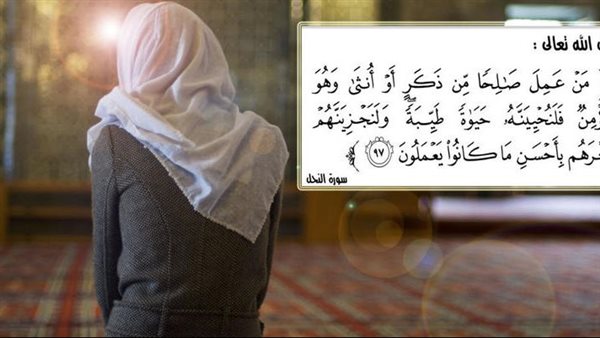 الله تعالى :
مَنْ عَمِلَ صَـٰلِحًا مِّن ذَكَرٍ أَوْ أُنثَىٰ وَهُوَ
فَلَنُحْيِيَنَّهُۥ حَيَوٰةً طَيِّبَةًۖ وَلَنَجْزِيَنَّهُمْ
جْرَهُم بِأَحْسَنِ مَا كَانُوا۟ يَعْمَلُونَ ٩٧
سورة النحل